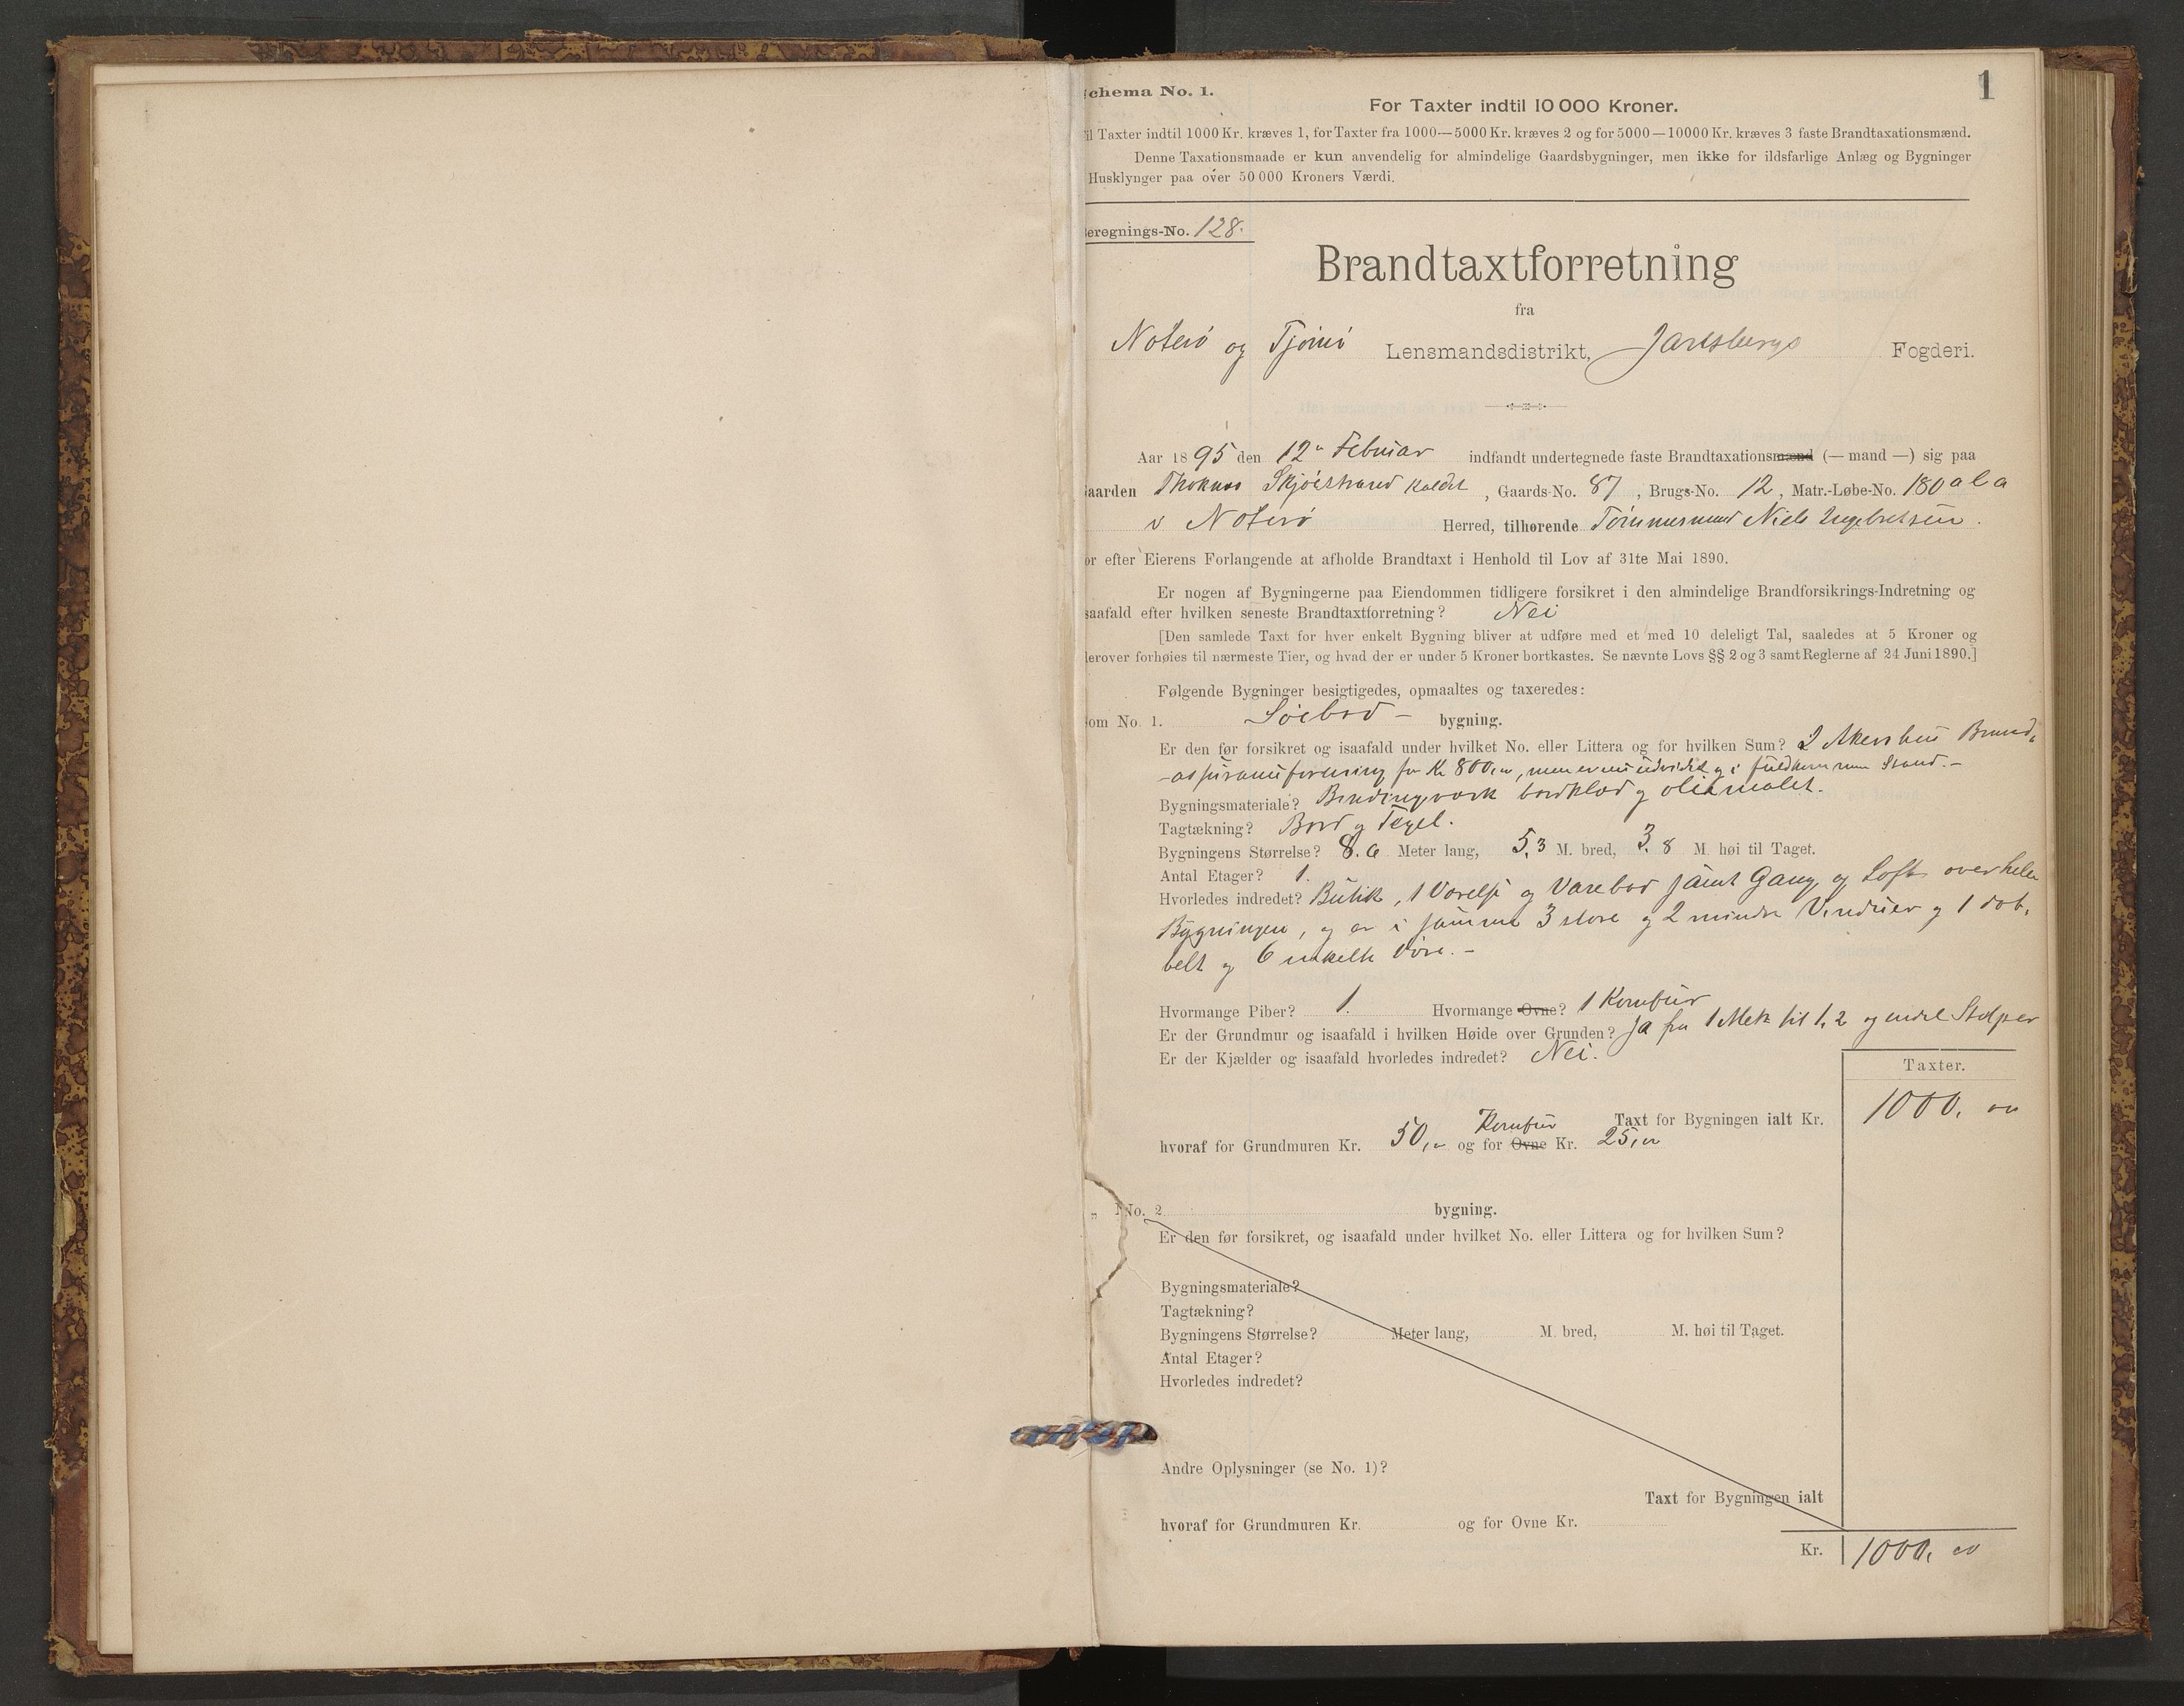 1
chema No. 1.
For Taxter indtil 10 000 Kroner.
il Taxter indtil 1000 Kr. kræves 1, for Taxter fra 1000—5000 Kr. kræves 2 og for 5000—10000 Kr. kræves 3 faste Brandtaxationsmænd.
Denne Taxationsmaade er kun anvendelig for almindelige Gaardsbygninger, men ikke for ildsfarlige Anlæg og Bygninger
Husklynger paa over 50 000 Kroners Værdi.
eregnings-No. 128.
Brandtaxtforretning
fra
Noterø og Tjømø Lensmandsdistrikt, Jarlsbergs Fogderi.
Aar 1895 den 12te Februar indfandt undertegnede faste Brandtaxationsmænd (— mand —) sig paa
aarden Skjølstrand kaldet, Gaards-No. 87, Brugs-No. 12, Matr.-Løbe-No. 180 a l a
i Noterø Herred, tilhørende Tømmermand Niels Engebretsen.
or efter Eierens Forlangende at afholde Brandtaxt i Henhold til Lov af 31te Mai 1890.
Er nogen af Bygningerne paa Eiendommen tidligere forsikret i den almindelige Brandforsikrings-Indretning og
saafald efter hvilken seneste Brandtaxtforretning? Nei
[Den samlede Taxt for hver enkelt Bygning bliver at udføre med et med 10 deleligt Tal, saaledes at 5 Kroner og
lerover forhøies til nærmeste Tier, og hvad der er under 5 Kroner bortkastes. Se nævnte Lovs §§ 2 og 3 samt Reglerne af 24 Juni 1890.]
Følgende Bygninger besigtigedes, opmaaltes og taxeredes:
om No. 1. Søebod - bygning.
Er den før forsikret og isaafald under hvilket No. eller Littera og for hvilken Sum? I Akershus Brand-
-assuranceforening for Kr 800,00, men er nu udvidet og i fuldkommen Stand.-
Bygningsmateriale? Bindingsværk bordklæd og oliemalet.
Tagtækning? Bord og Tegel.
Bygningens Størrelse? 8.6 Meter lang, 5,3 M. bred, 3.8 M. høi til Taget.
Antal Etager? 1.
Hvorledes indredet? Butik, 1 Værelse og Varebod samt Gang og Loft over hele
Bygningen, og er i samme 3 store og 2 mindre Vinduer og 1 dob-
belt og 6 enkelte Døre.-
Hvormange Piber? 1. Hvormange Ovne? 1 Komfur
Er der Grundmur og isaafald i hvilken Høide over Grunden? Ja fra 1 Meter til 1,2 og endel Stolper
Er der Kjælder og isaafald hvorledes indredet? Nei.
Taxter.
Taxt for Bygningen ialt Kr. 1000, 00
Komfur
hvoraf for Grundmuren Kr. 50,00 og for Ovne Kr. 25,00
„ No. 2 bygning.
Er den før forsikret, og isaafald under hvilket No. eller Littera og for hvilken Sum?
Bygningsmateriale?
Tagtækning?
Bygningens Størrelse? Meter lang, M. bred, M. høi til Taget.
Antal Etager?
Hvorledes indredet?
Andre Oplysninger (se No. 1)?
Taxt for Bygningen ialt
hvoraf for Grundmuren Kr. og for Ovne Kr.
Kr. 1000, 00